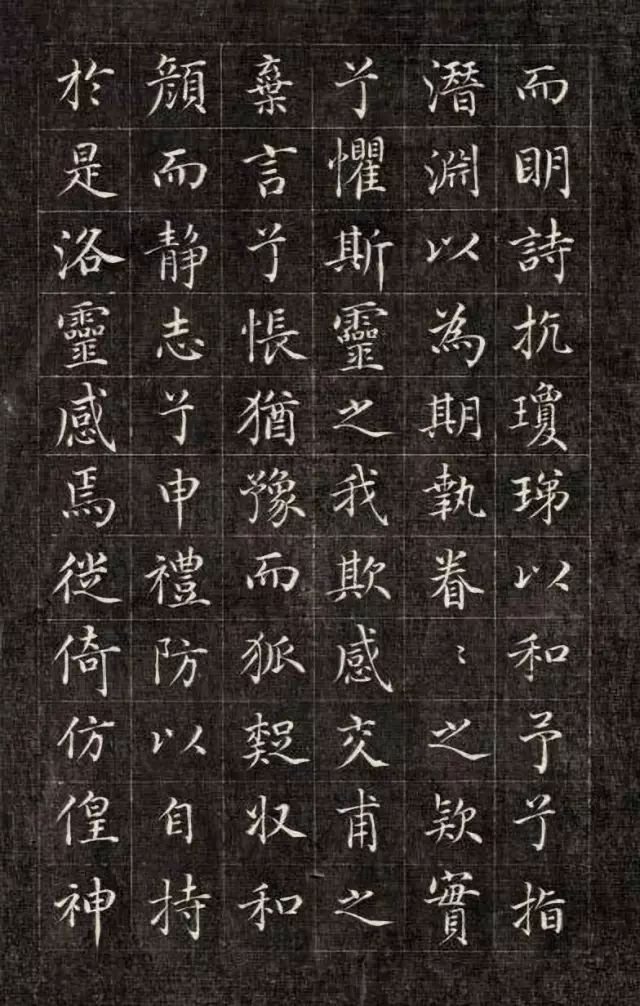 而明詩抗瓊珶以和予兮指
潛淵以為期執眷〻之款實
兮懼斯靈之我欺感交甫之
棄言兮悵猶豫而狐疑収和
顔而静志兮申禮防以自持
於是洛靈感焉徙倚仿偟神